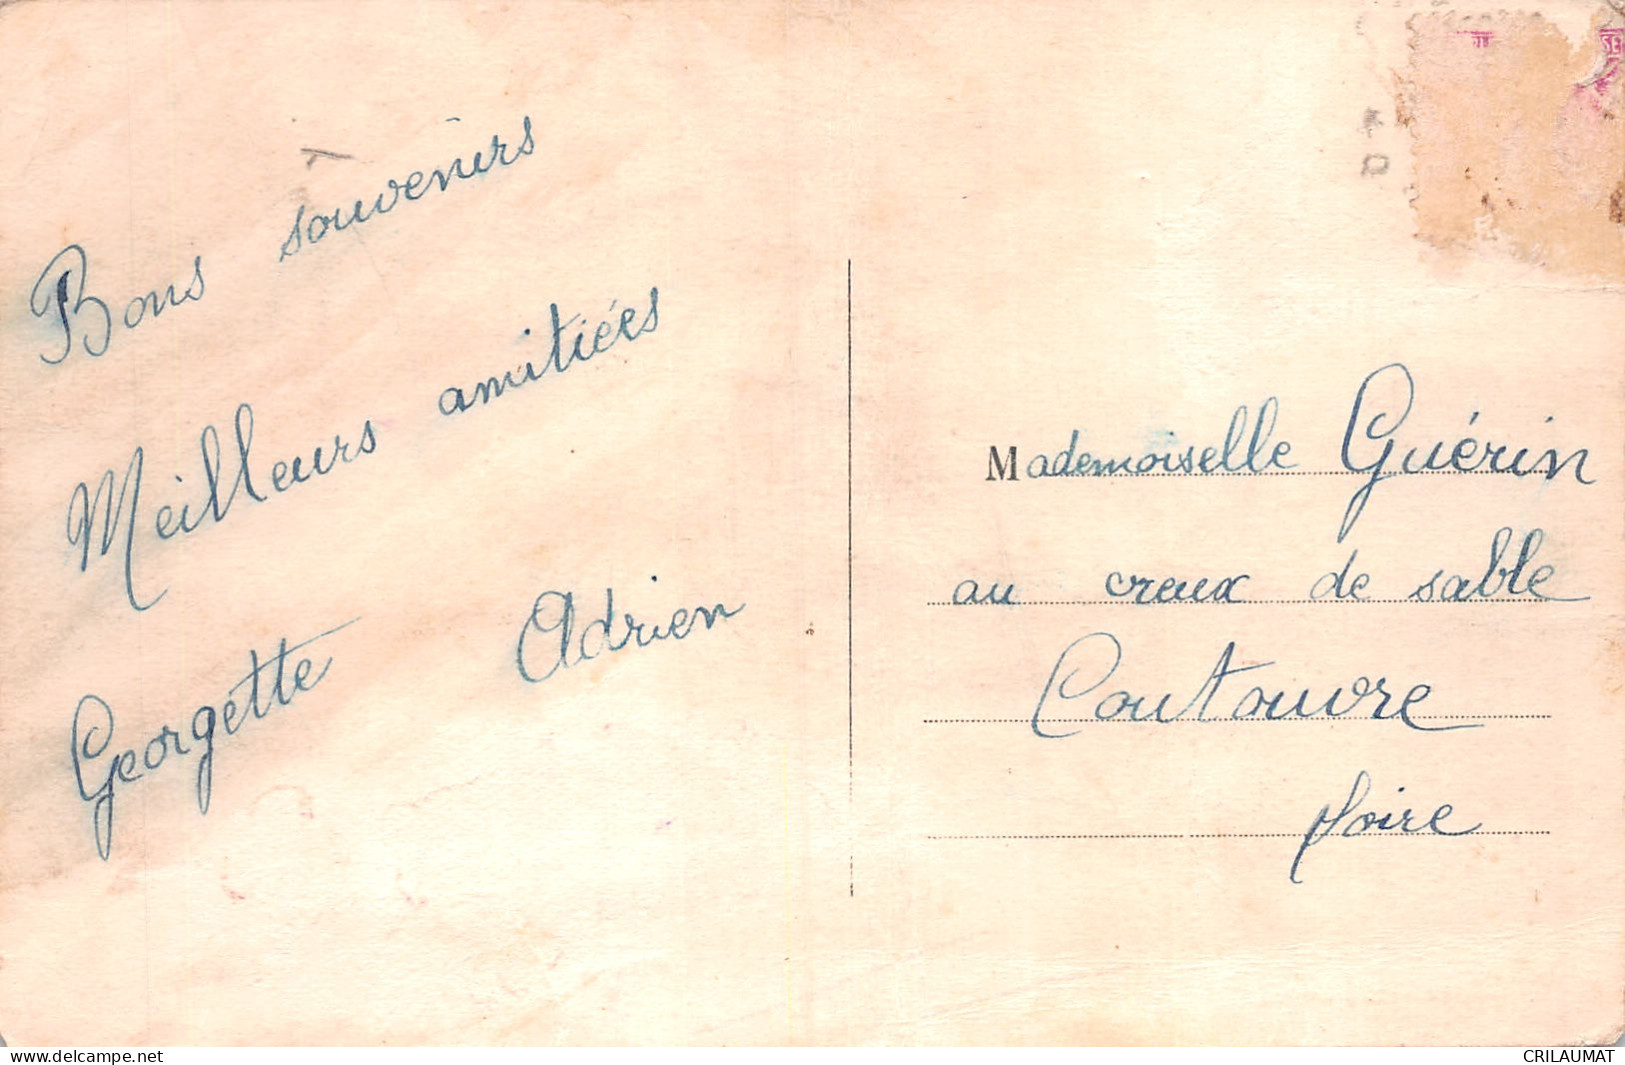 Bons souvenirs
Meilleurs amitiées
Georgette Adrien
Mademoiselle Guérin
au creux de sable
Coutouvre
Loire
SE
www.delcampe.net
CRILAUMAT